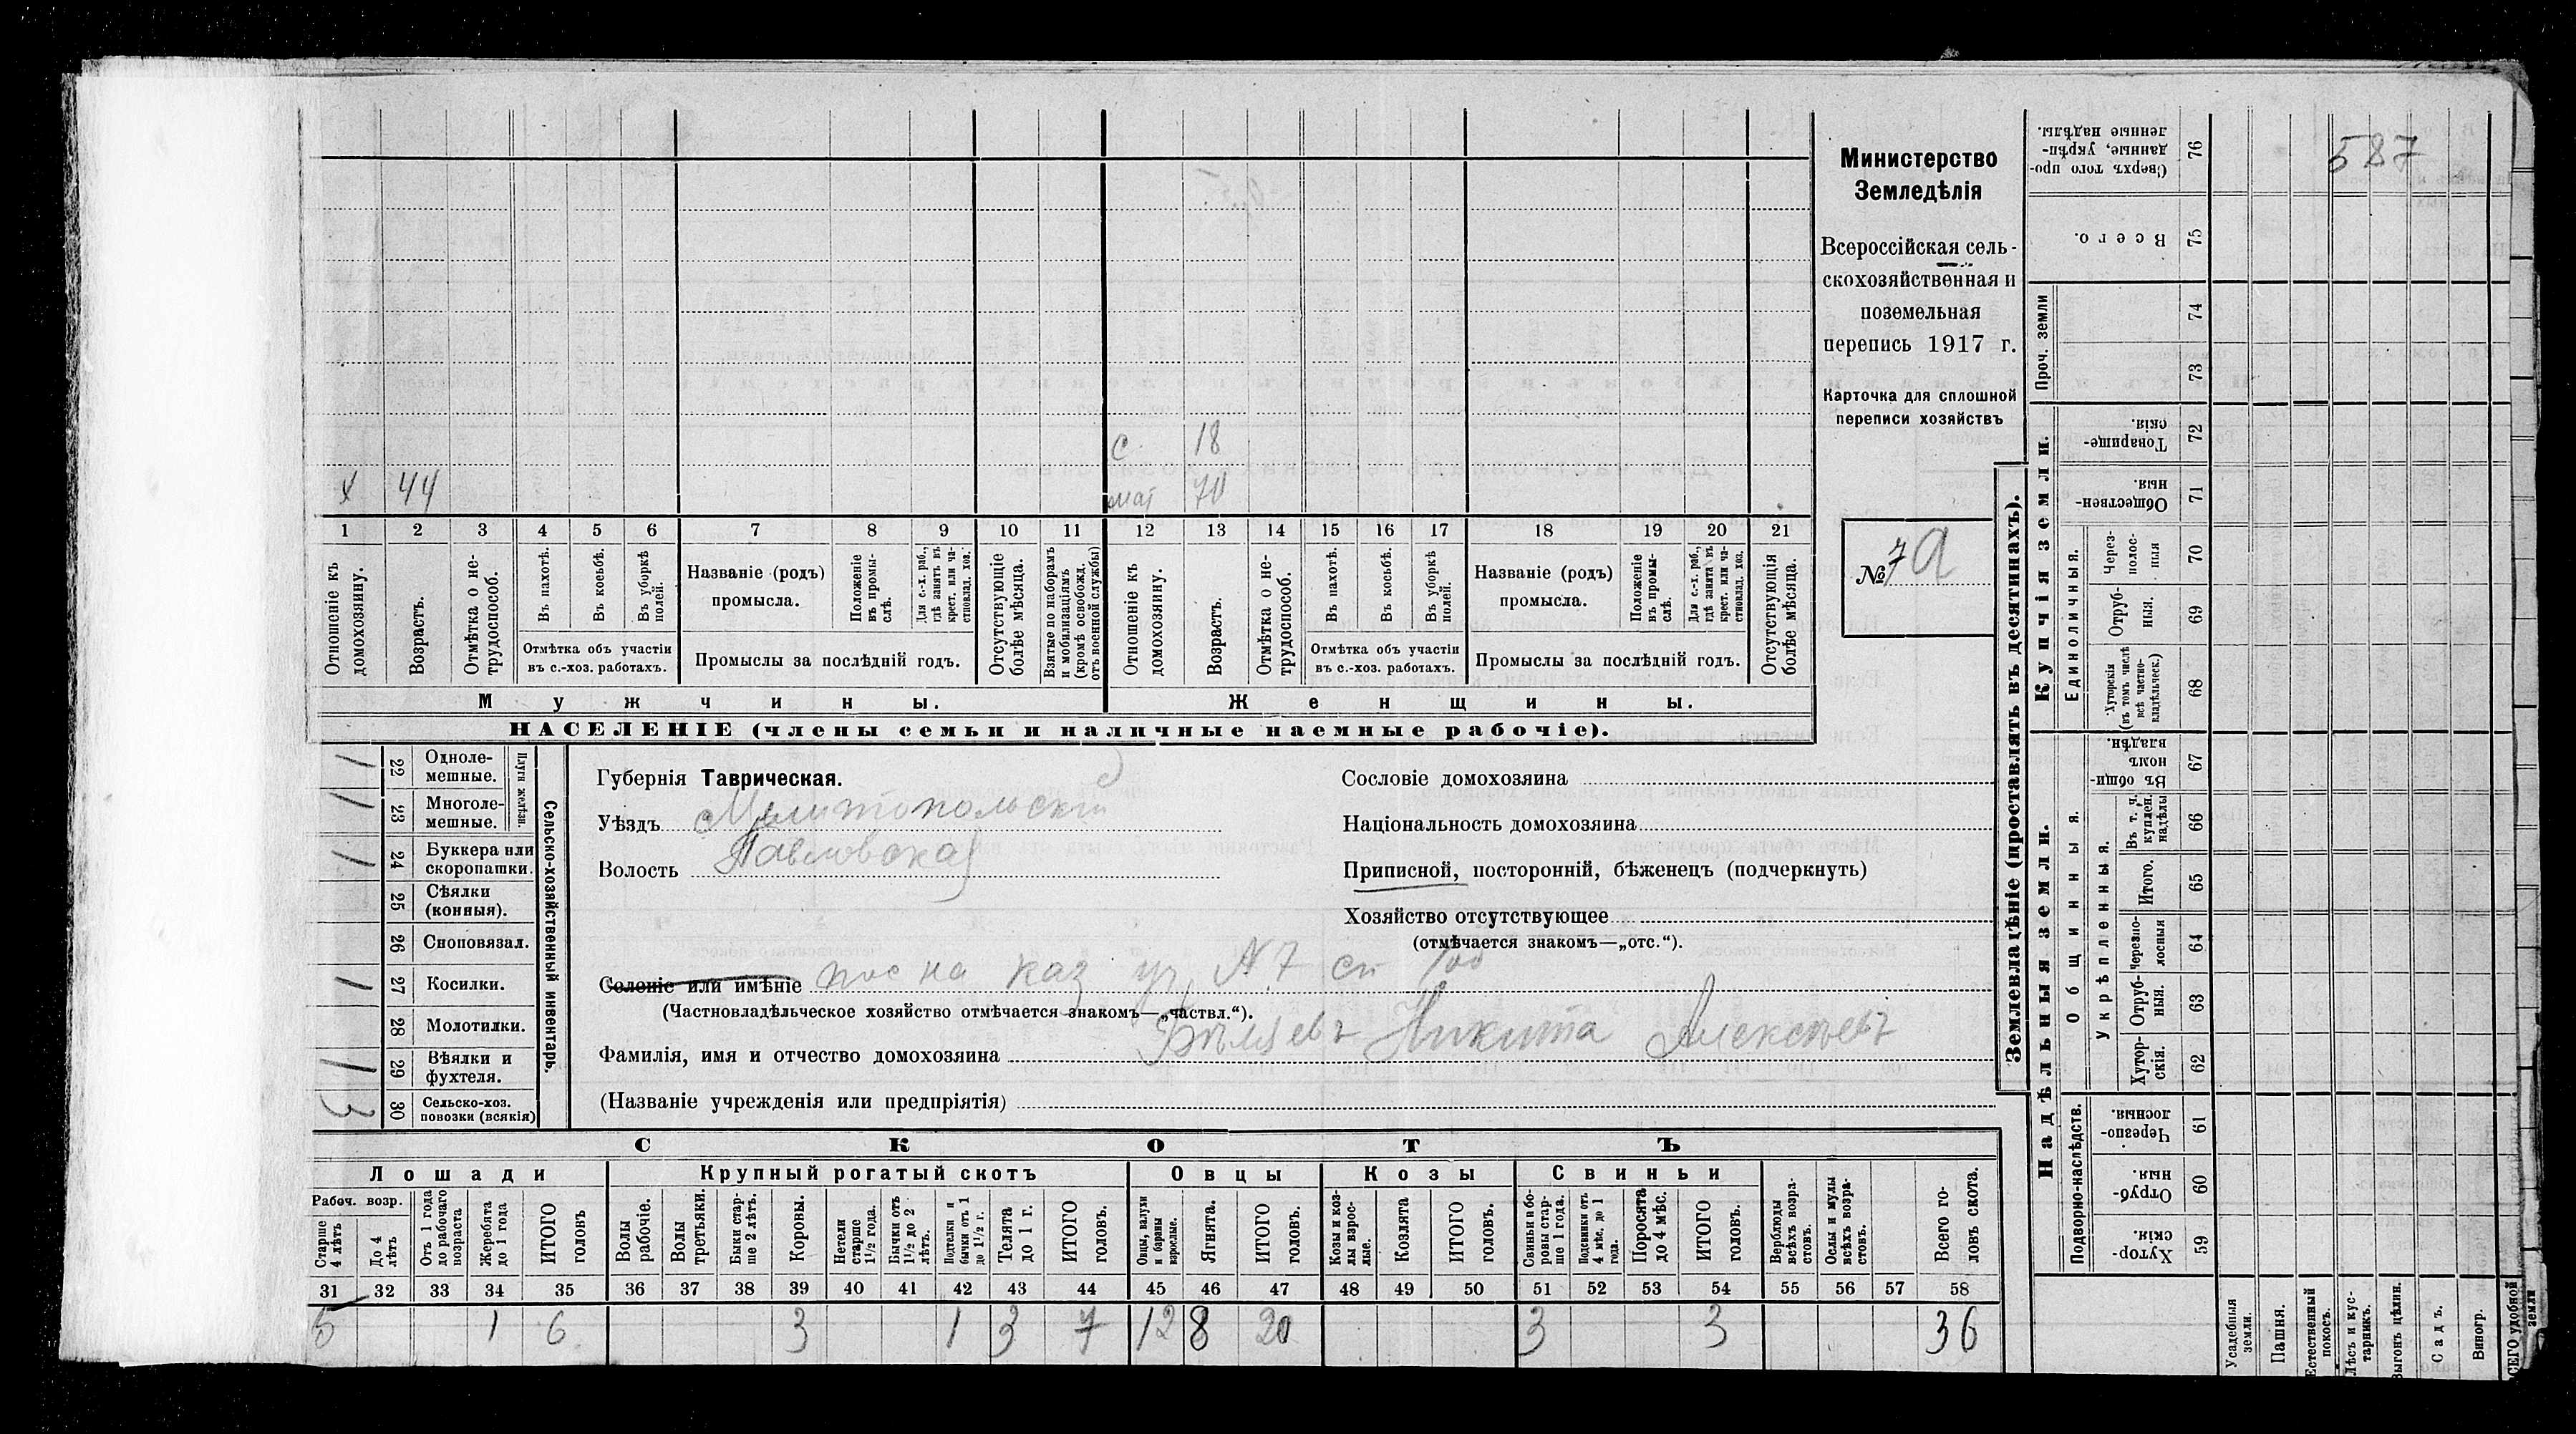 Министерство
Земледѣлія
Всероссійская сель-
скохозяйственная и
поземельная
перепись 1917 г.
Карточка для сплошной
переписи хозяйствъ
№ 7а
587
с. 18
х 44
мат 70
1 2 3 4 5 6 7 8 9 10 11 12 13 14 15 16 17 18 19 20 21
Отношеніе къ домохозяину.
Возрастъ.
Отмѣтка о не-трудоспособ.
Въ пахотѣ.
Въ косьбѣ.
Въ уборкѣ полей.
Отмѣтка объ участіи
въ с.-хоз. работахъ.
Названіе (родъ)
промысла.
Положеніе въ промы-слѣ.
Для с.-х. раб., гдѣ занятъ въ крест. или ча-стновлад. хоз.
Промыслы за послѣдній годъ.
Отсутствующіе болѣе мѣсяца.
Взятые по наборамъ и мобилизаціямъ (кромѣ освобожд. отъ военной службы)
Отношеніе къ домохозяину.
Возрастъ.
Отмѣтка о не-трудоспособ.
Въ пахотѣ.
Въ косьбѣ.
Въ уборкѣ полей.
Отмѣтка объ участіи
въ с.-хоз. работахъ.
Названіе (родъ)
промысла.
Положеніе въ промы-слѣ.
Для с.-х. раб., гдѣ занята въ крест. или ча-стновлад. хоз.
Промыслы за послѣдній годъ.
Отсутствующія болѣе мѣсяца.
Мужчины.
Женщины.
НАСЕЛЕНІЕ (члены семьи и наличные наемные рабочіе).
Сельско-хозяйственный инвентарь.
Плуги желѣзн.
1 22 Одноле-мешные.
1 23 Многоле-мешные.
1 24 Буккера или скоропашки.
25 Сѣялки (конныя).
26 Сноповязал.
1 27 Косилки.
28 Молотилки.
1 29 Вѣялки и фухтеля.
3 30 Сельско-хоз. повозки (всякія)
Губернія Таврическая.
Уѣздъ Мелитопольскій
Волость Павловская
Сословіе домохозяина
Національность домохозяина
Приписной, посторонній, бѣженецъ (подчеркнуть)
Хозяйство отсутствующее
(отмѣчается знакомъ—„отс.“).
Селеніе или имѣніе пос на каз уч N. 7
(Частновладѣльческое хозяйство отмѣчается знакомъ—„частвл.“).
Фамилія, имя и отчество домохозяина Бѣляевъ Никита Алексѣевъ
(Названіе учрежденія или предпріятія)
СКОТЪ
Лошади
Крупный рогатый скотъ
Овцы
Козы
Свиньи
Рабоч. возр.
Старше 4 лѣтъ
До 4 лѣтъ
Отъ 1 года до рабочаго возраста
Жеребята до 1 года
ИТОГО головъ
Волы рабочіе.
Волы третьяки.
Быки стар-ше 2 лѣтъ.
Коровы.
Нетели старше 1½ года.
Бычки отъ 1½ до 2 лѣтъ.
Подтелки и бычки отъ 1 до 1½ г.
Телята до 1 г.
ИТОГО головъ.
Овцы, валухи и бараны взрослые.
Ягнята.
ИТОГО головъ.
Козы и коз-лы взрос-лые.
Козлята
ИТОГО головъ.
Свиньи и бо-ровы стар-ше 1 года.
Подсвинки отъ 4 мѣс. до 1 года.
Поросята до 4 мѣс.
ИТОГО головъ.
Верблюды всѣхъ возра-стовъ.
Ослы и мулы всѣхъ возра-стовъ.
Всего го-ловъ скота.
31 32 33 34 35 36 37 38 39 40 41 42 43 44 45 46 47 48 49 50 51 52 53 54 55 56 57 58
5 1 6 3 1 3 7 12 8 20 3 3 36
Землевладѣніе (проставлять въ десятинахъ).
Надѣльныя земли.
Купчія земли.
Проч. земли
Подворно-наслѣдств.
Общинныя.
Укрѣпленныя.
Единоличныя.
Сверхъ того про-данные, укрѣп-ленные надѣлы. 76
Всего. 75
74
73
Товарище-скія. 72
Обществен-ныя. 71
Через-полос-ныя 70
Отруб-ныя. 69
Хуторскія (въ томъ числѣ всѣ частно-владѣльческ.) 68
Въ общи-номъ владѣн. 67
Въ т. ч. куплен. надѣлы 66
Итого. 65
Черезпо-лосныя 64
Отруб-ныя. 63
Хутор-скія. 62
Черезпо-лосныя. 61
Отруб-ныя. 60
Хутор-скія. 59
Усадебныя земли.
Пашня.
Естественный покосъ.
Лѣсъ и кус-тарникъ.
Выгонъ цѣлин.
Садъ.
Виногр.
ВСЕГО удобной земли